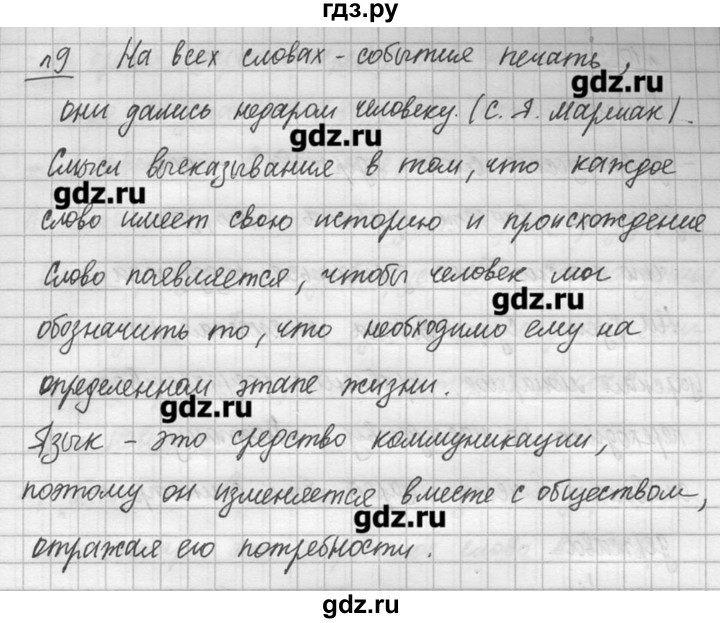 гдз.ру
п9 На всех словах - события печать,
gdz.ru
они дались недаром человеку. (С. Я. Маршак).
gdz.ru
Смысл высказывания в том, что каждое
gdz.ru
слово имеет свою историю и происхождение
Слово появляется, чтобы человек мог
gdz.ru
обозначить то, что необходимо ему на
определенном этапе жизни.
gdz.ru
Язык - это средство коммуникации,
поэтому он изменяется вместе с обществом,
gdz.ru
отражая его потребности.
gdz.ru